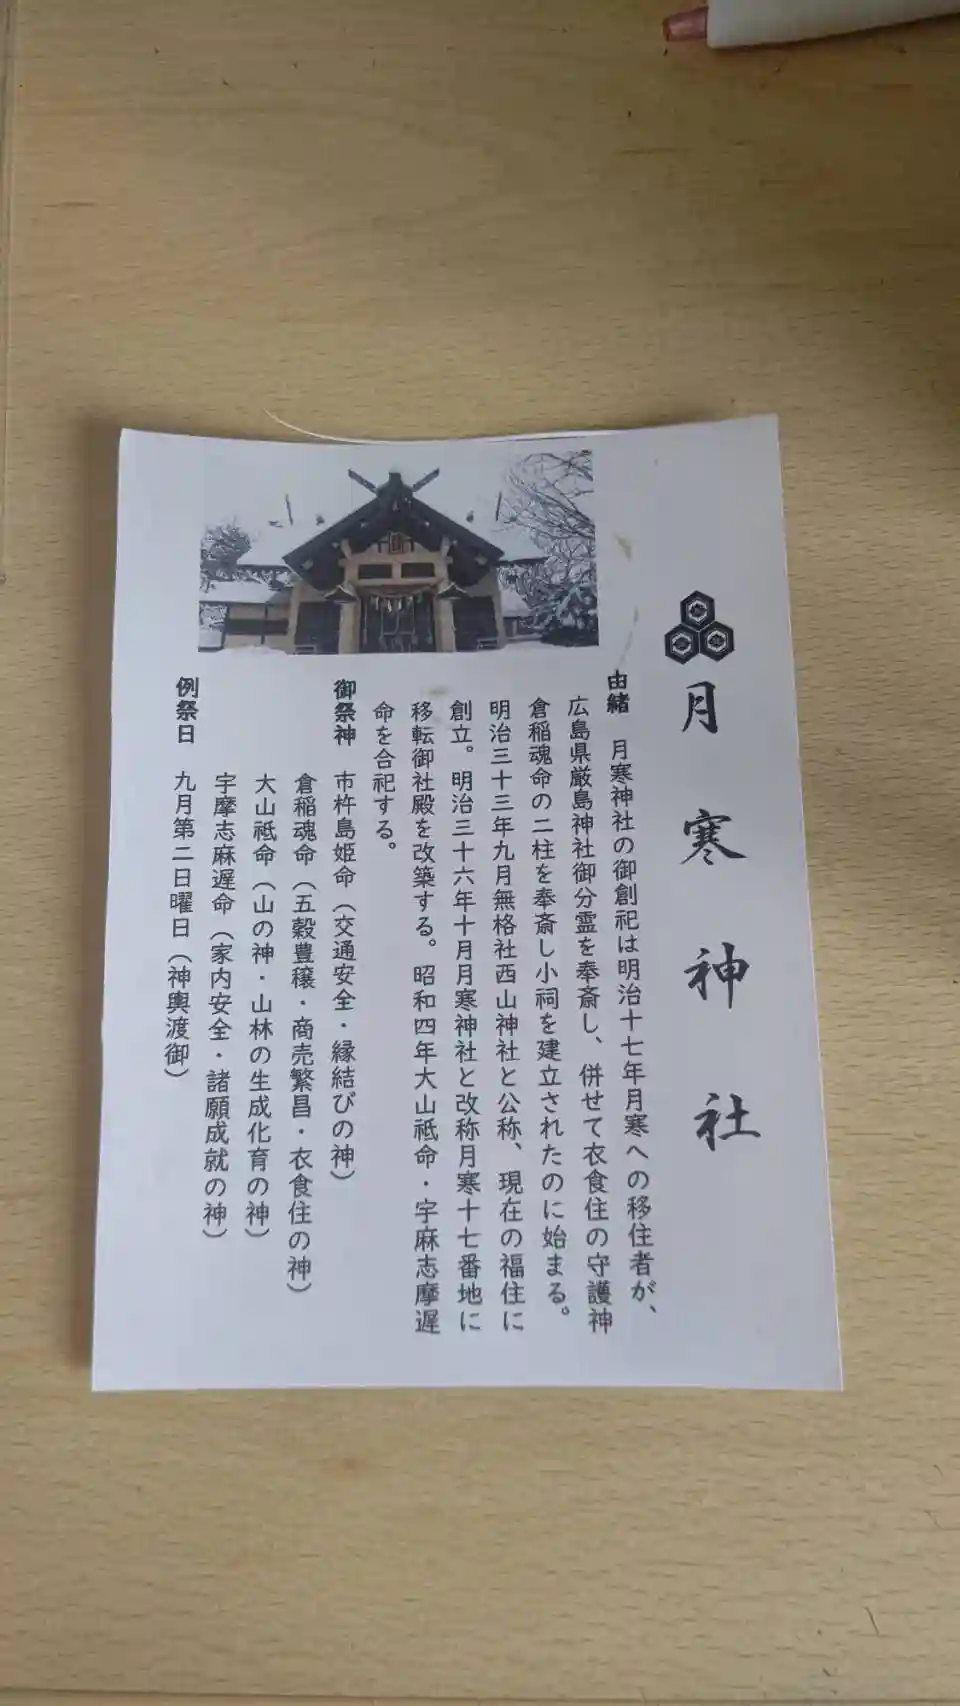 月寒神社
由緒 月寒神社の御創祀は明治十七年月寒への移住者が、
広島県厳島神社御分霊を奉斎し、併せて衣食住の守護神
倉稲魂命の二柱を奉斎し小祠を建立されたのに始まる。
明治三十三年九月無格社西山神社と公称、現在の福住に
創立。明治三十六年十月月寒神社と改称月寒十七番地に
移転御社殿を改築する。昭和四年大山祇命・宇麻志摩遅
命を合祀する。
御祭神 市杵島姫命（交通安全・縁結びの神）
倉稲魂命（五穀豊穣・商売繁昌・衣食住の神）
大山祇命（山の神・山林の生成化育の神）
宇摩志麻遅命（家内安全・諸願成就の神）
例祭日 九月第二日曜日（神輿渡御）